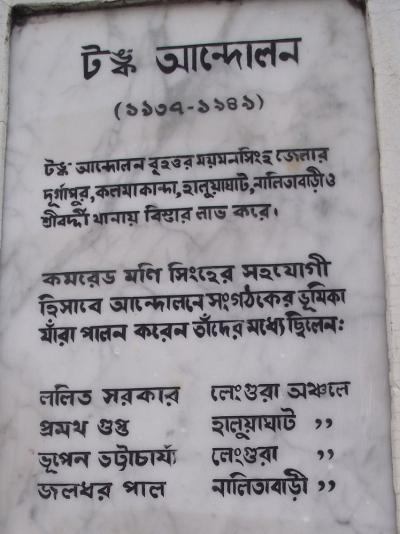 টঙ্ক আন্দোলন
(১৯৩৭-১৯৪৯)
টঙ্ক আন্দোলন বৃহত্তর ময়মনসিংহ জেলার
দূর্গাপুর, কলমাকান্দা, হালুয়াঘাট, নালিতাবাড়ী ও
শ্রীবর্দ্দী থানায় বিস্তার লাভ করে।
কমরেড মণি সিংহের সহযোগী
হিসাবে আন্দোলনে সংগঠকের ভূমিকা
যাঁরা পালন করেন তাঁদের মধ্যে ছিলেন:
ললিত সরকার লেংগুরা অঞ্চলে
প্রমথ গুপ্ত হালুয়াঘাট ,,
ভূপেন ভট্টাচার্য্য লেংগুরা ,,
জলধর পাল নালিতাবাড়ী ,,